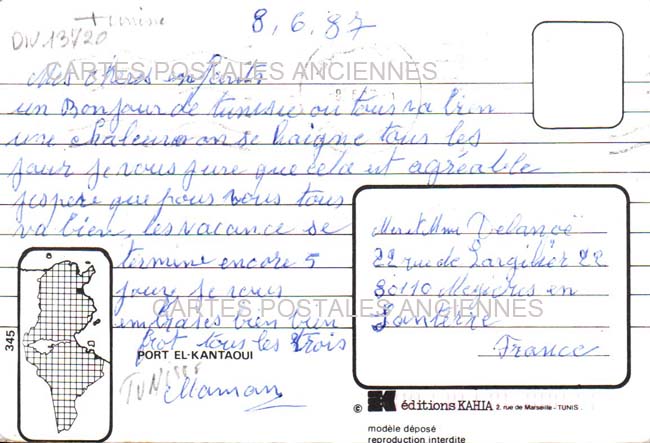 tunisie
DIV 13420
8.6.87
CARTES POSTALES ANCIENNES
Mes chers enfants
un Bonjour de tunisie ou tous va bien
une chaleur on se baigne tous les
jour je vous jure que cela est agréable
jespere que pour vous tous
va bien les vacance se
termine encore 5
jours je vous
embrases bien bien
fort tous les trois
Maman
Mer et Mme Delanoë
22 rue de Largilier 22
80110 Mezieres en
Santerre
France
CARTES POSTALES ANCIENNES
345
PORT EL-KANTAOUI
TUNISIE
© K éditions KAHIA 2, rue de Marseille - TUNIS.
modèle déposé
reproduction interdite